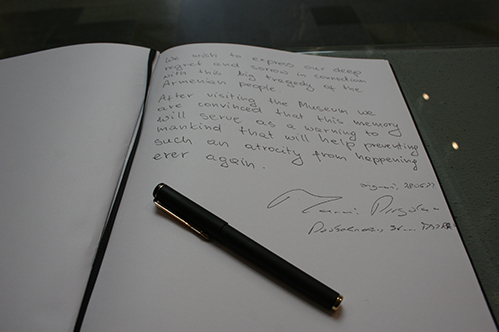 We wish to express our deep
regret and sorrow in connection
with the big tragedy of the
Armenian people.
After visiting the Museum we
are convinced that this memory
will serve as a warning to
mankind that will help preventing
such an atrocity from happening
ever again.